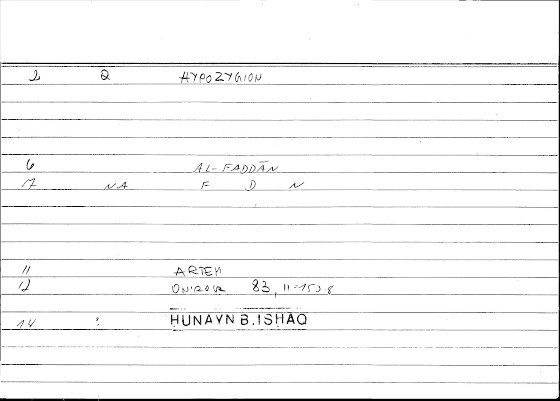 2 Q HYPOZYGION
6 AL-FADDĀN
17 NA F D N
11 ARTEM
12 ONIROCR 83, 11-153 8
14 : HUNAYN B.ISHAQ